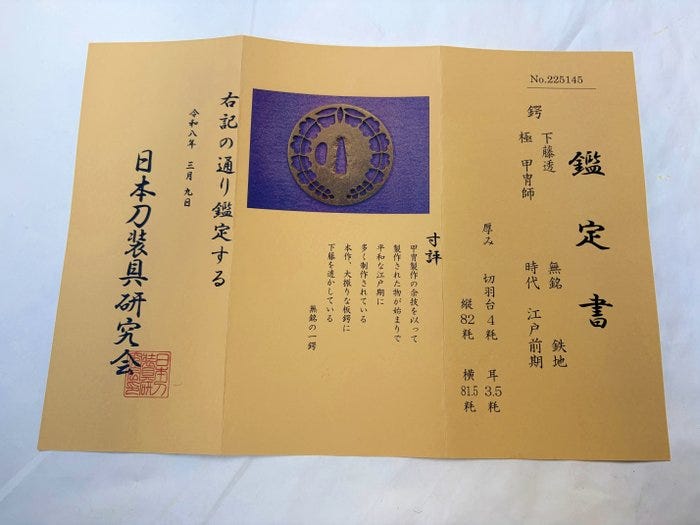 No.225145
鑑定書
鍔 下藤透 無銘 鉄地
極 甲冑師 時代 江戸前期
厚み 切羽台4粍 耳3.5粍
縦82粍 横81.5粍
寸評
甲冑製作の余技を以って
製作された物が始まりで
平和な江戸期に
多く制作されている
本作、大振りな板鍔に
下藤を透かしている
無銘の一鍔
右記の通り鑑定する
令和八年 三月 九日
日本刀装具研究会